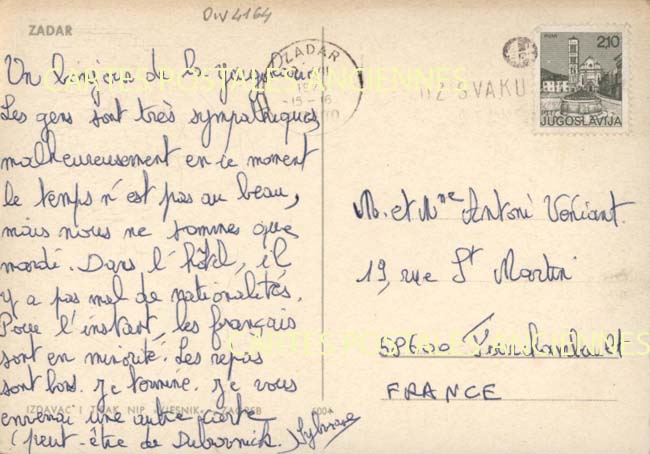 DIV 4164
ZADAR
ZADAR
15-16
UZ SVAKU
2,10
JUGOSLAVIJA
CARTES POSTALES ANCIENNES
Un bonjour de la Yougoslavie.
Les gens sont très sympathiques,
malheureusement en ce moment
le temps n'est pas au beau,
mais nous ne sommes que
mardi. Dans l'hôtel, il
y a pas mal de nationalités.
Pour l'instant, les français
sont en minorité. Les repas
sont bons. Je termine. Je vous
enverrai une autre carte
(peut-être de Dubrovnick.)
M. et Mme Antoni
19, rue St Martin
CARTES POSTALES ANCIENNES
FRANCE
IZDAVAČ I TISAK NIP «VJESNIK» ZAGREB 5004